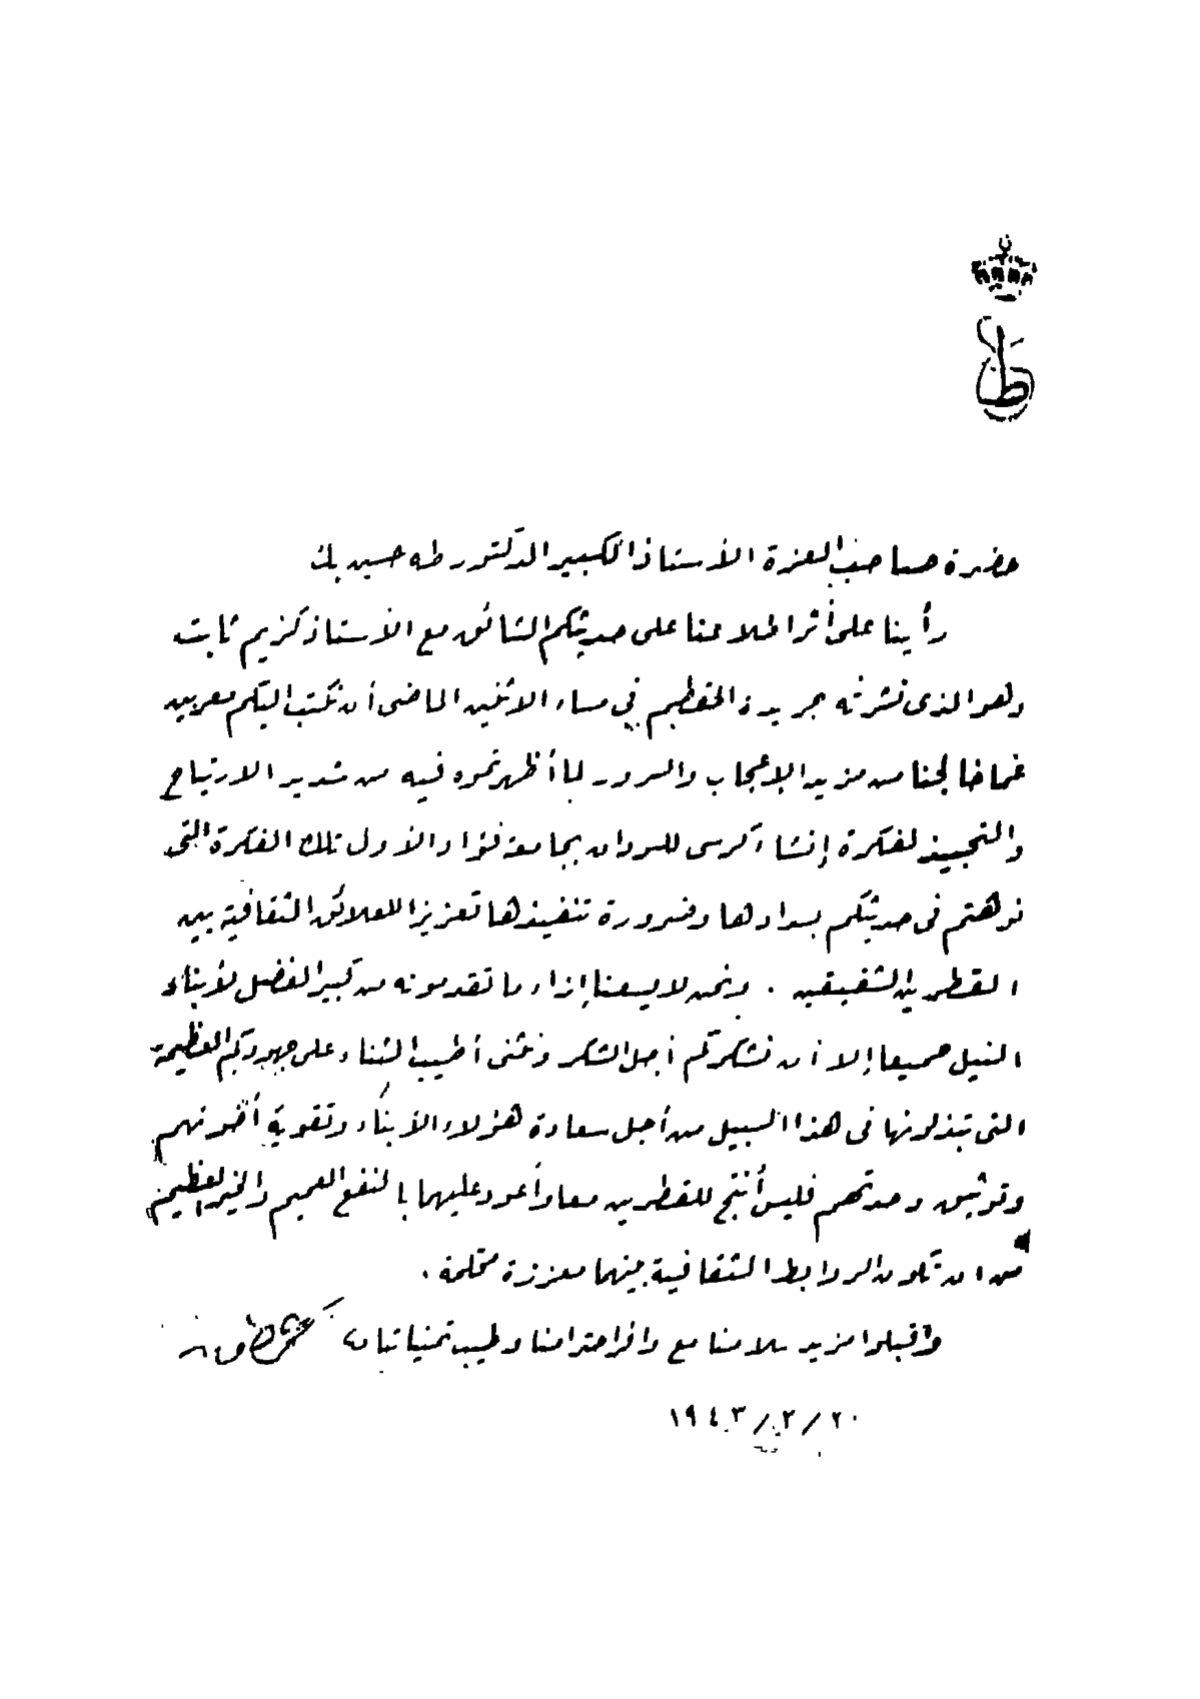 حضرة صاحب العزة الأستاذ الكبير الدكتور طه حسين بك
رأينا على أثر اطلاعنا على حديثكم الشائق مع الأستاذ كريم ثابت
وهو الذى نشرته جريدة المقطم في مساء الاثنين الماضى أن نكتب اليكم معربين
عما خالجنا من مزيد الإعجاب والسرور لما أظهرتموه فيه من شديد الارتياح
والتحبيذ لفكرة إنشاء كرسى للسودان بجامعة فؤاد الأول تلك الفكرة التى
نوهتم فى حديثكم بسدادها وضرورة تنفيذها تعزيزا للعلائق الثقافية بين
القطرين الشقيقين . ونحن لا يسعنا إزاء ما تقدمونه من كبير الفضل لأبناء
النيل جميعا إلا أن نشكركم أجمل الشكر ونثنى أطيب الثناء على جهودكم العظيمة
التى تبذلونها فى هذا السبيل من أجل سعادة هؤلاء الأبناء وتقوية أخوتهم
وتوثيق وحدتهم فليس أنتج للقطرين معا وأعود عليهما بالنفع العميم والخير العظيم
من ان تكون الروابط الثقافية بينهما معززة محكمة .
واقبلوا مزيد سلامنا مع وافر احترامنا وطيب تمنياتنا
٢٠/٢/١٩٤٣